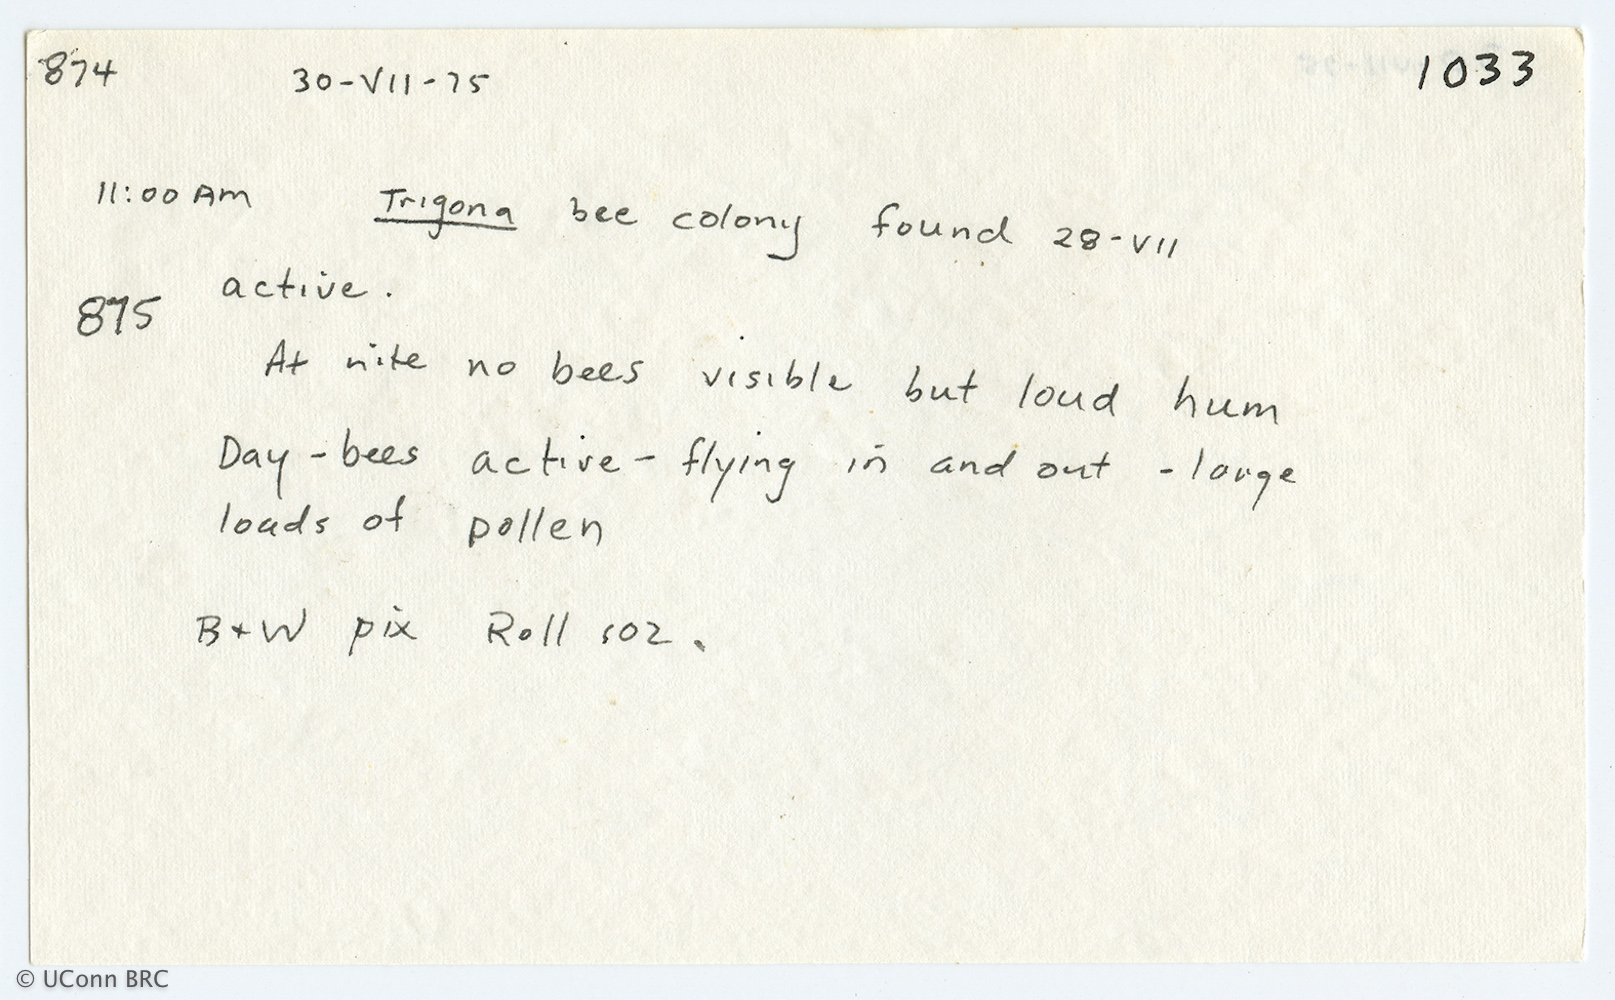 874 30-VII-75 1033
11:00 AM Trigona bee colony found 28-VII
active.
875
At nite no bees visible but loud hum
Day - bees active - flying in and out - large
loads of pollen
B+W pix Roll 102.
© UConn BRC